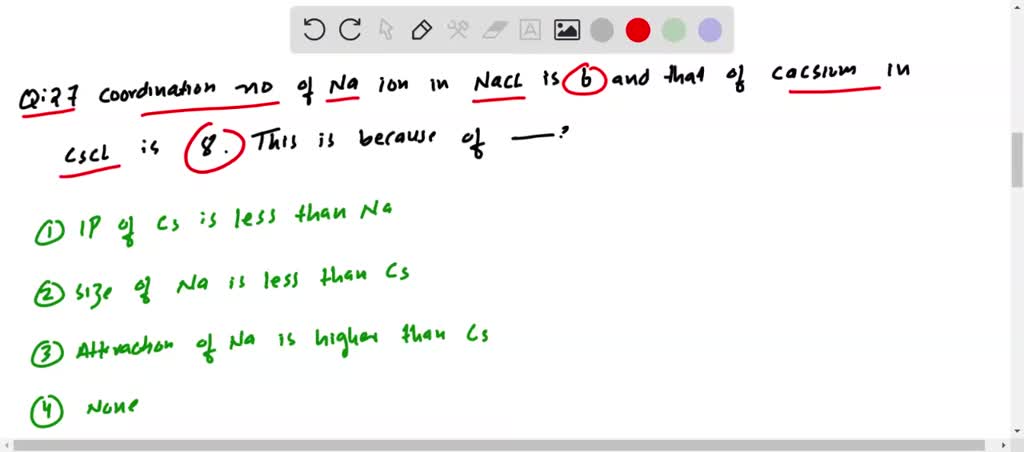 Q:27 coordination no of Na ion in NaCl is 6 and that of cacsium in
CsCl is 8. This is because of — ?
① IP of Cs is less than Na
② size of Na is less than Cs
③ Attraction of Na is higher than Cs
④ None